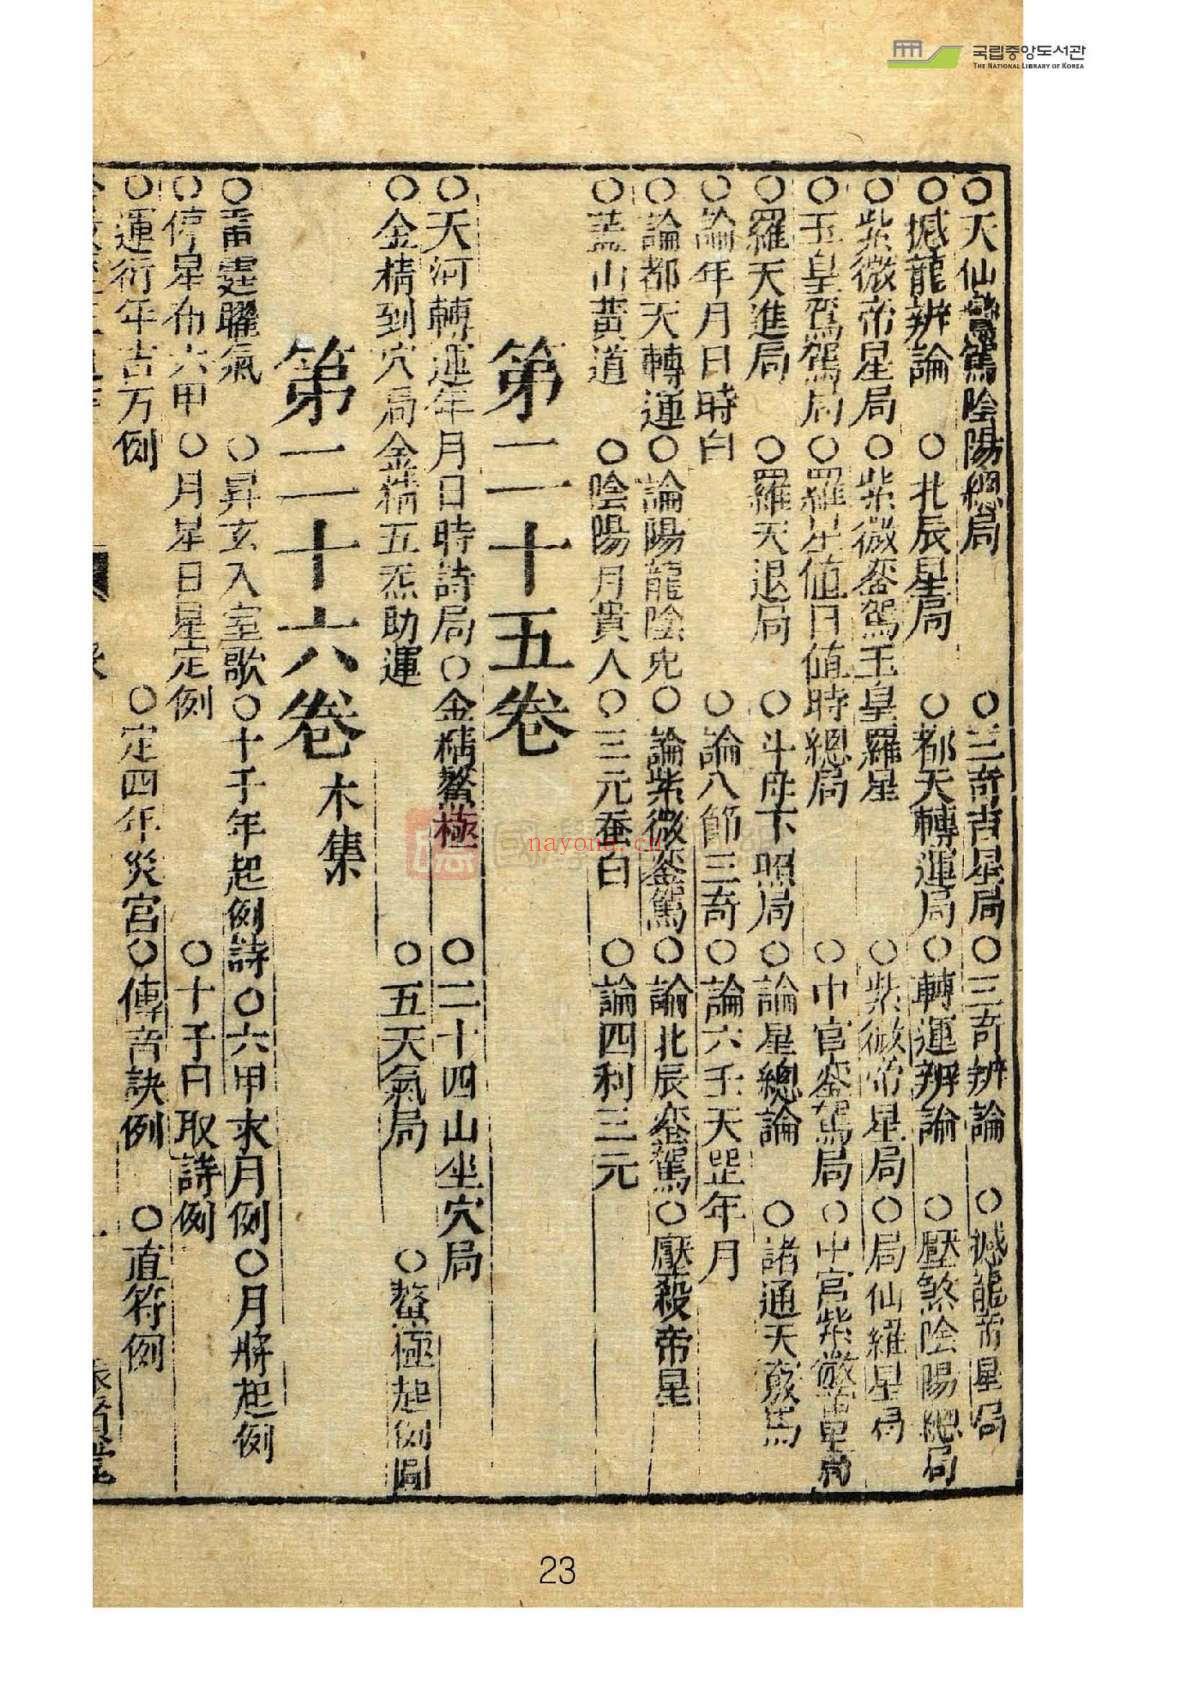 국립중앙도서관
THE NATIONAL LIBRARY OF KOREA
○天仙鸞駕陰陽總局○三奇吉星局○三奇辨論○撼龍帝星局
○撼龍辨論○北辰星局○都天轉運局○轉運辨論○壓煞陰陽總局
○紫微帝星局○紫微鑾駕玉皇羅星○紫微帝星局○局仙羅星局
○玉皇鸞駕局○羅星值日値時總局○中宮鑾駕局○中宮紫微帝星局
○羅天進局○羅天退局○斗母下照局○論星總論○諸通天竅馬
○論年月日時白○論八節三奇○論六壬天罡年月
○論都天轉運○論陽龍陰兎○論紫微鑾駕○論北辰鑾駕○壓殺帝星
○蓋山黃道○陰陽月貴人○三元蚕白○論四利三元
第二十五卷
○天河轉運年月日時詩局○金精鰲極○二十四山坐穴局
○金精到穴局金精五炁助運○五天氣局○鰲極起例圖
第二十六卷 木集
○雷霆曜氣○昇玄入室歌○十干年起例詩○六甲求月例○月將起例
○停星布六甲○月星日星定例○十予日取詩例
○運衍年吉方例○定四年災宮○傳音訣例○直符例
國學
nayona.cn
23